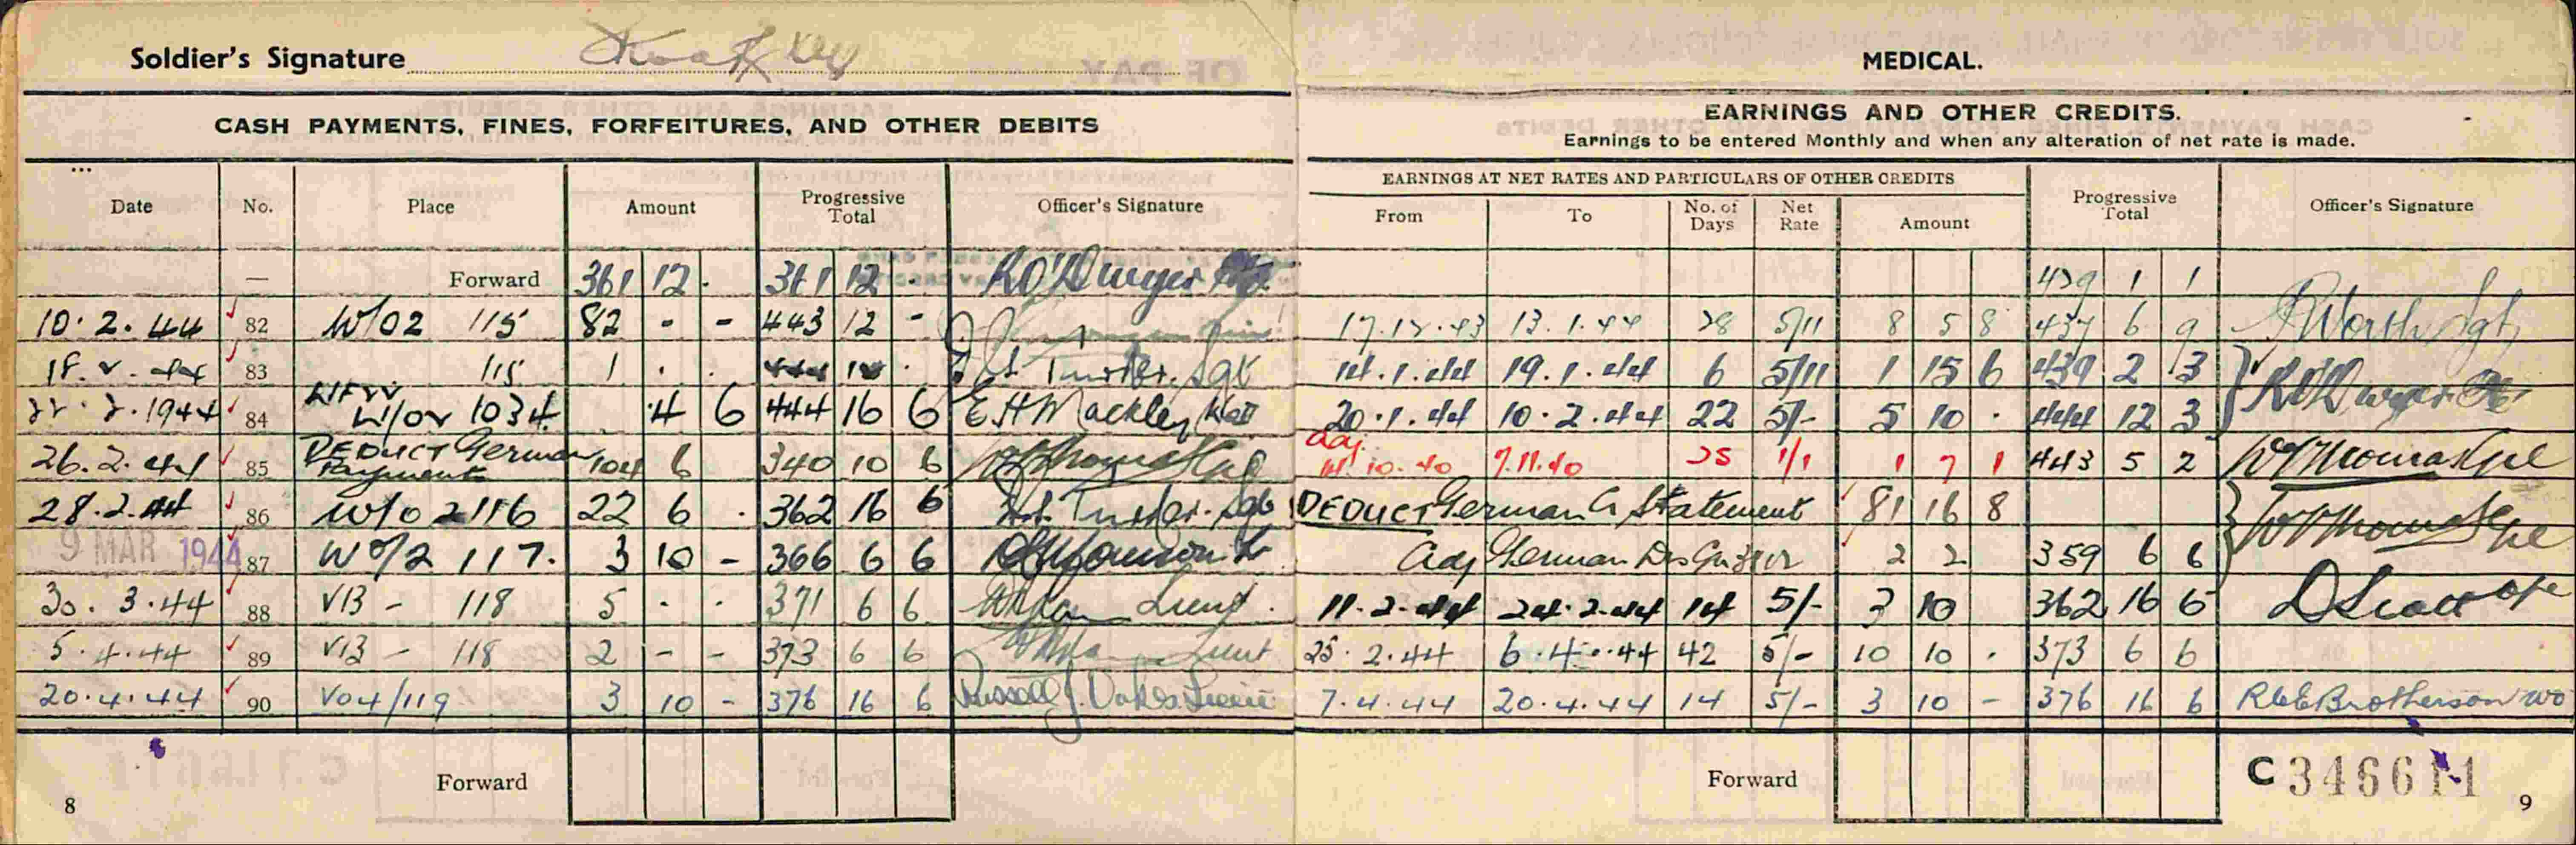 Soldier's Signature
CASH PAYMENTS, FINES, FORFEITURES, AND OTHER DEBITS
Date No. Place Amount Progressive Total Officer's Signature
— Forward 361 12 . 361 12 -
10.2.44 82 W/02 115 82 - - 443 12 -
83 115 1 . . Sgt
1944 84 1034 4 6 444 16 6 E H Mackley
26.2.44 85 DEDUCT German Payments 104 6 340 10 6
28.2.44 86 W/02 116 22 6 . 362 16 6 Sgt
9 MAR 1944 87 Wo/2 117. 3 10 - 366 6 6
30.3.44 88 V13 - 118 5 . . 371 6 6
5.4.44 89 V13 - 118 2 - - 373 6 6
20.4.44 90 V04/119 3 10 - 376 16 6 Russell J. Oakes
Forward
8
MEDICAL.
EARNINGS AND OTHER CREDITS.
Earnings to be entered Monthly and when any alteration of net rate is made.
EARNINGS AT NET RATES AND PARTICULARS OF OTHER CREDITS
From To No. of Days Net Rate Amount Progressive Total Officer's Signature
1 1
17.12.43 13.1.44 28 5/11 8 5 8 437 6 9 Worth Sgt
14.1.44 19.1.44 6 5/11 1 15 6 439 2 3
20.1.44 10.2.44 22 5/- 5 10 . 444 12 3
adj 14.10.40 7.11.40 25 1/1 1 7 1 443 5 2
DEDUCT German Statement 81 16 8
adj German 2 2 359 6 6
11.2.44 24.2.44 14 5/- 3 10 362 16 6 D Scott
25.2.44 6.4.44 42 5/- 10 10 . 373 6 6
7.4.44 20.4.44 14 5/- 3 10 - 376 16 6 Brotherson WO
Forward
C 346611
9